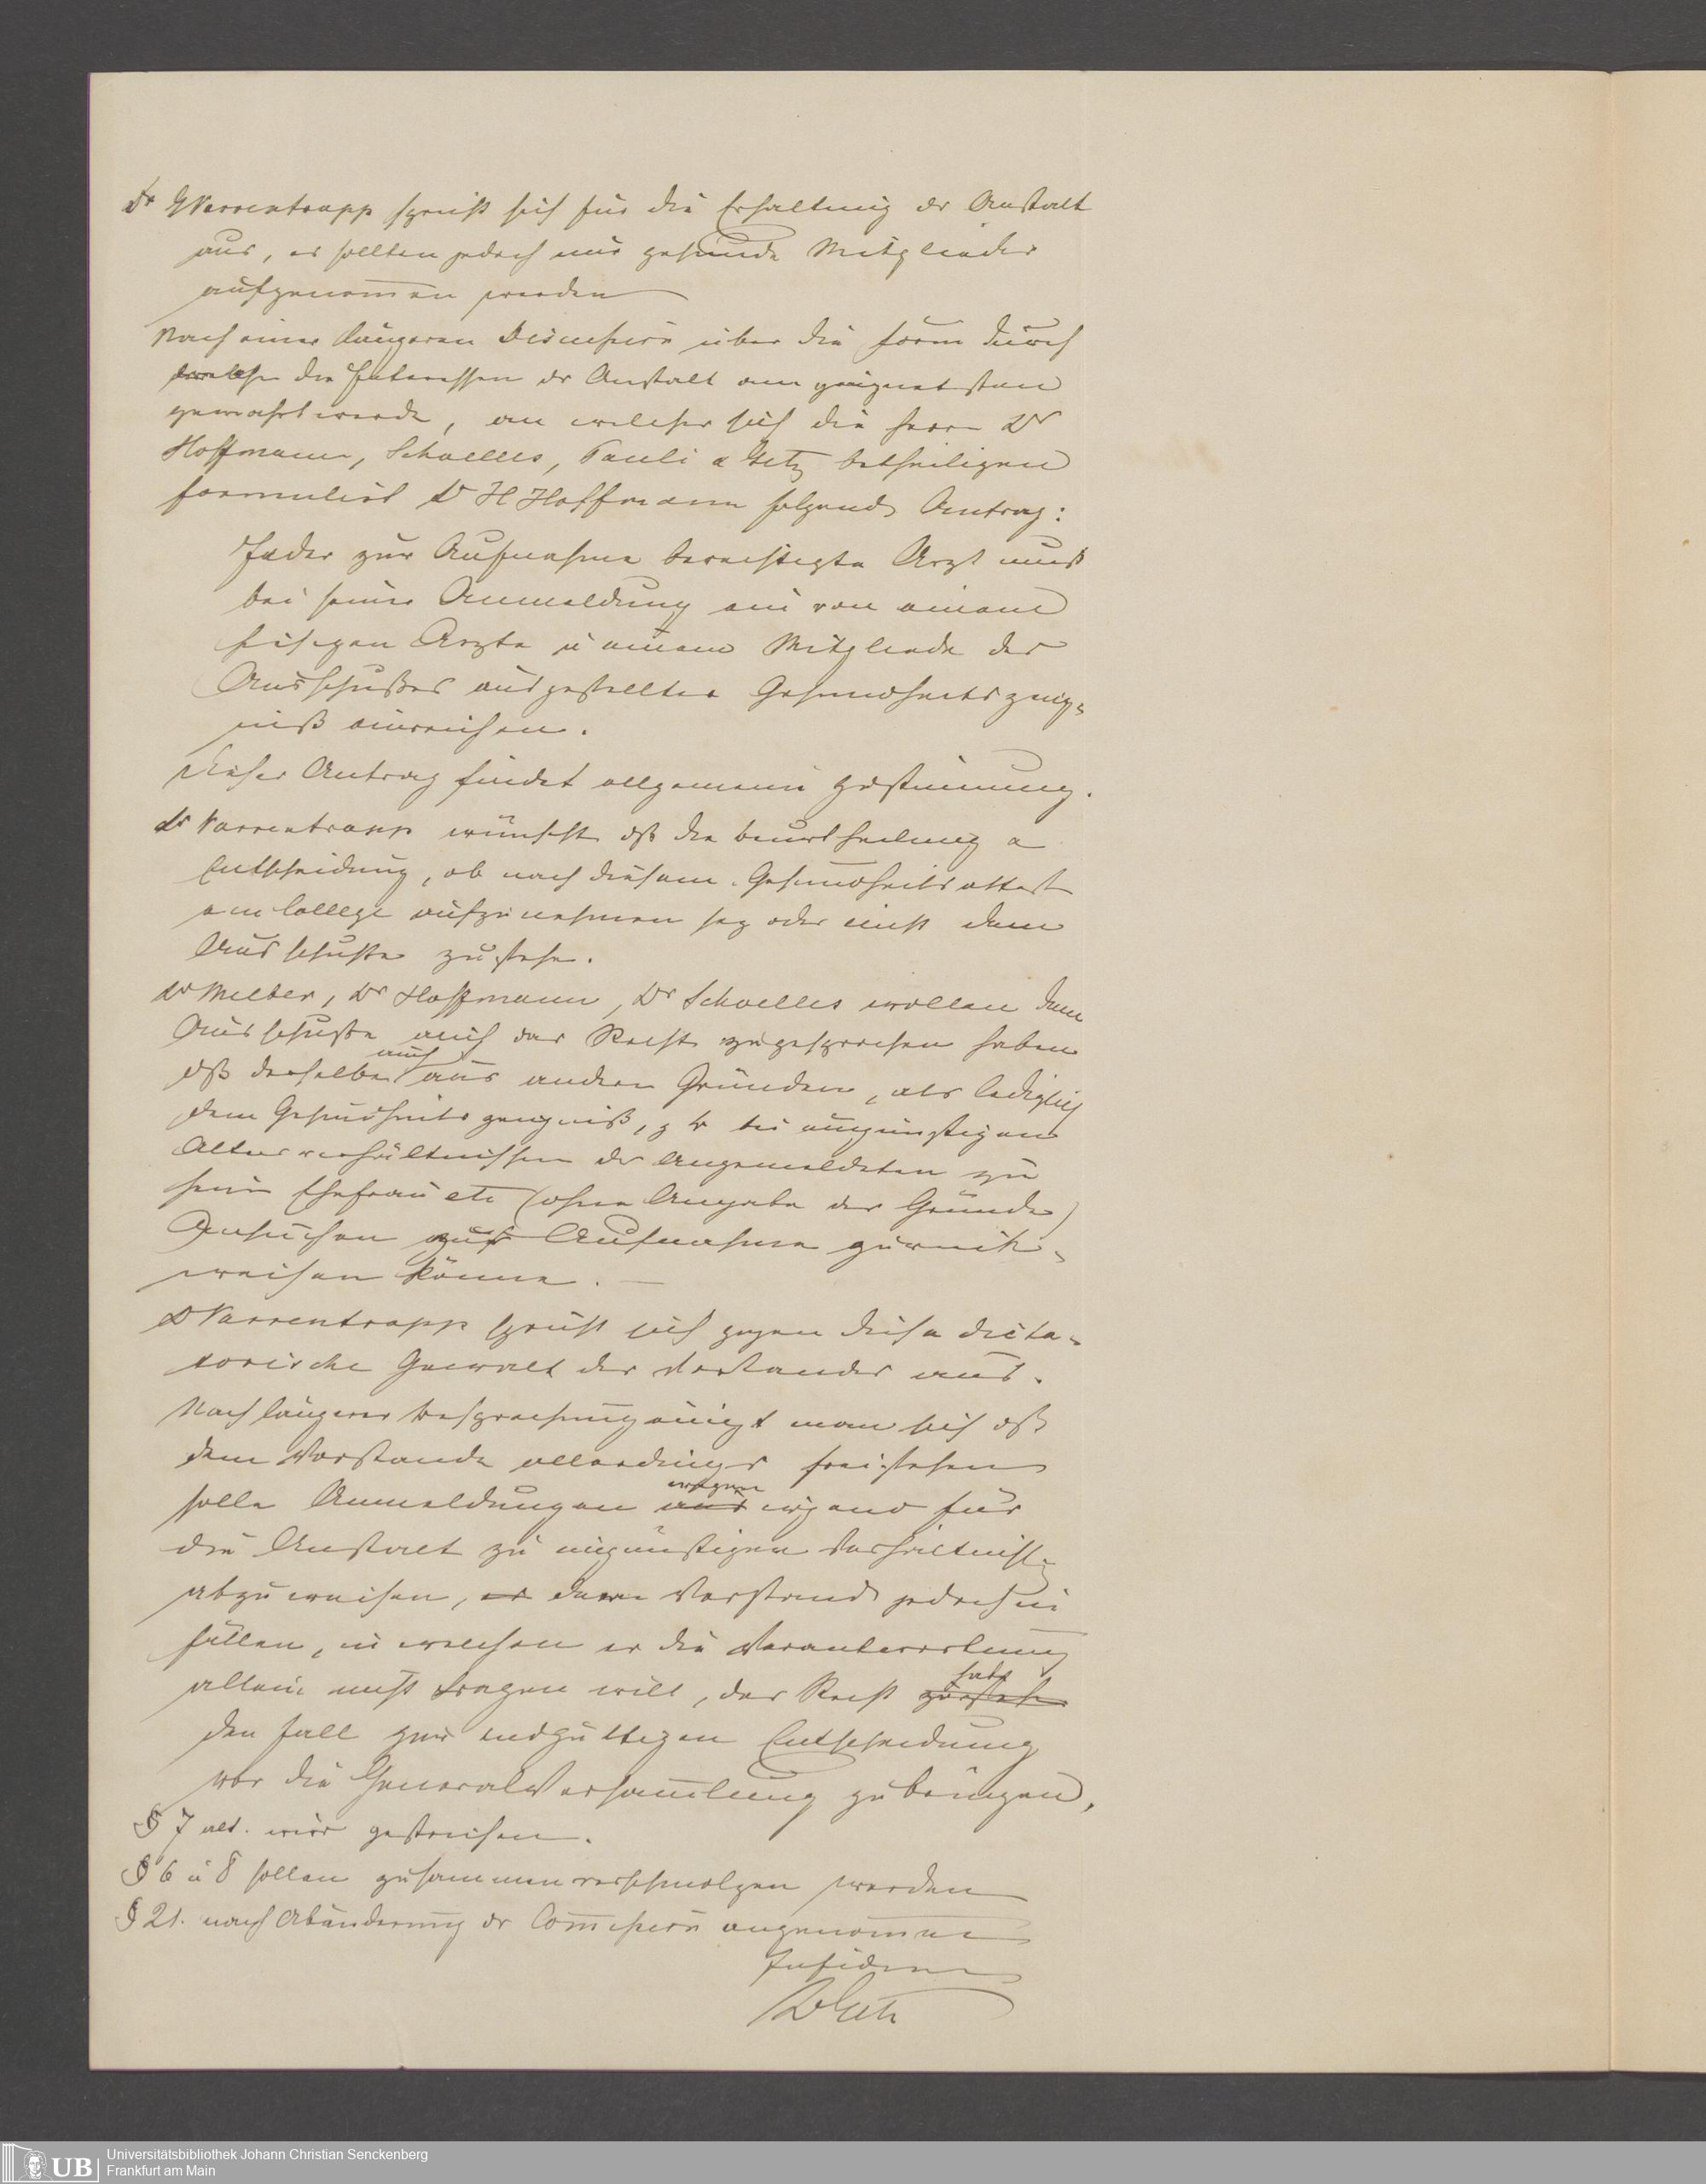 Dr GVarrentrapp spricht sich für die Erhaltung dr Anstalt
aus, es sollten jedoch nur gesunde Mitglieder
aufgenom̄en werden
Nach einer längeren Discussion über die Form durch
welche die Interessen dr Anstalt am geeignetsten
gewahrt werde, an welcher sich die Herrn Dr
Hoffmann, Schoelles, Pauli & Getz betheiligen
formulirt Dr H Hoffmann folgend Antrag:
Jeder zur Aufnahme berechtigte Arzt muß
bei seiner Anmeldung ein von einem
hiesigen Arzte u einem Mitgliede des
Ausschußes ausgestelltes Gesundheitszeug-
niß einreichen.
Dieser Antrag findet allgemein Zustimmung.
Dr Varrentrapp wünscht dß die Beurtheilung &
Entscheidung, ob nach diesem Gesundheitsattest
ein College aufzunehmen sey oder nicht dem
Ausschuße zustehe.
Dr Melber, Dr Hoffmann, Dr Schoelles wollen dem
Ausschuße auch das Recht zugesprochen haben
auch
dß derselbe aus andern Gründen, als lediglich
dem Gesundheitszeugniß, z B bei ungünstigen
Altersverhältnissen des Angemeldeten zu
seiner Ehefrau etc (ohne Angabe der Gründe)
Ansuchen auf Aufnahme zurück-
weisen könne. —
Dr Varrentrapp spricht sich gegen diese dicta-
torische Gewalt des Vorstandes aus.
Nach längerer Besprechung einigt man sich dß
dem Vorstande allerdings freistehen
wegen
solle Anmeldungen aus irgend für
die Anstalt zu ungünstigen Verhältnisse
abzuweisen, er dem Vorstand jedoch in
Fällen, in welchen er die Verantwortung
habe
allein nicht tragen will, das Recht zustehe
den Fall zur endgültigen Entscheidung
vor die GeneralVersam̄lung zu bringen.
§ 7 alt. wird gestrichen.
§ 6 u 8 sollen zusammenverschmolzen werden
§ 21. nach Abänderung dr Com̄ission angenom̄en
In fidem
Dr Getz
Universitätsbibliothek Johann Christian Senckenberg
Frankfurt am Main
UB